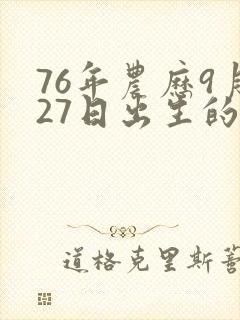 76年農歷9月
27日出生的
道格克里斯蒂